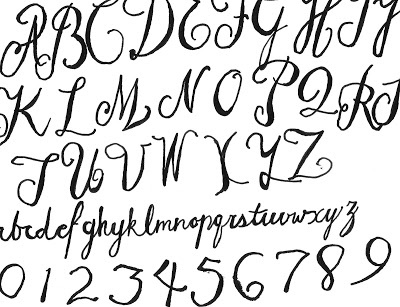 ABCDEFGHIJ
KLMNOPQRS
TUVWXYZ
abcdefghijklmnopqrstuvwxyz
0123456789